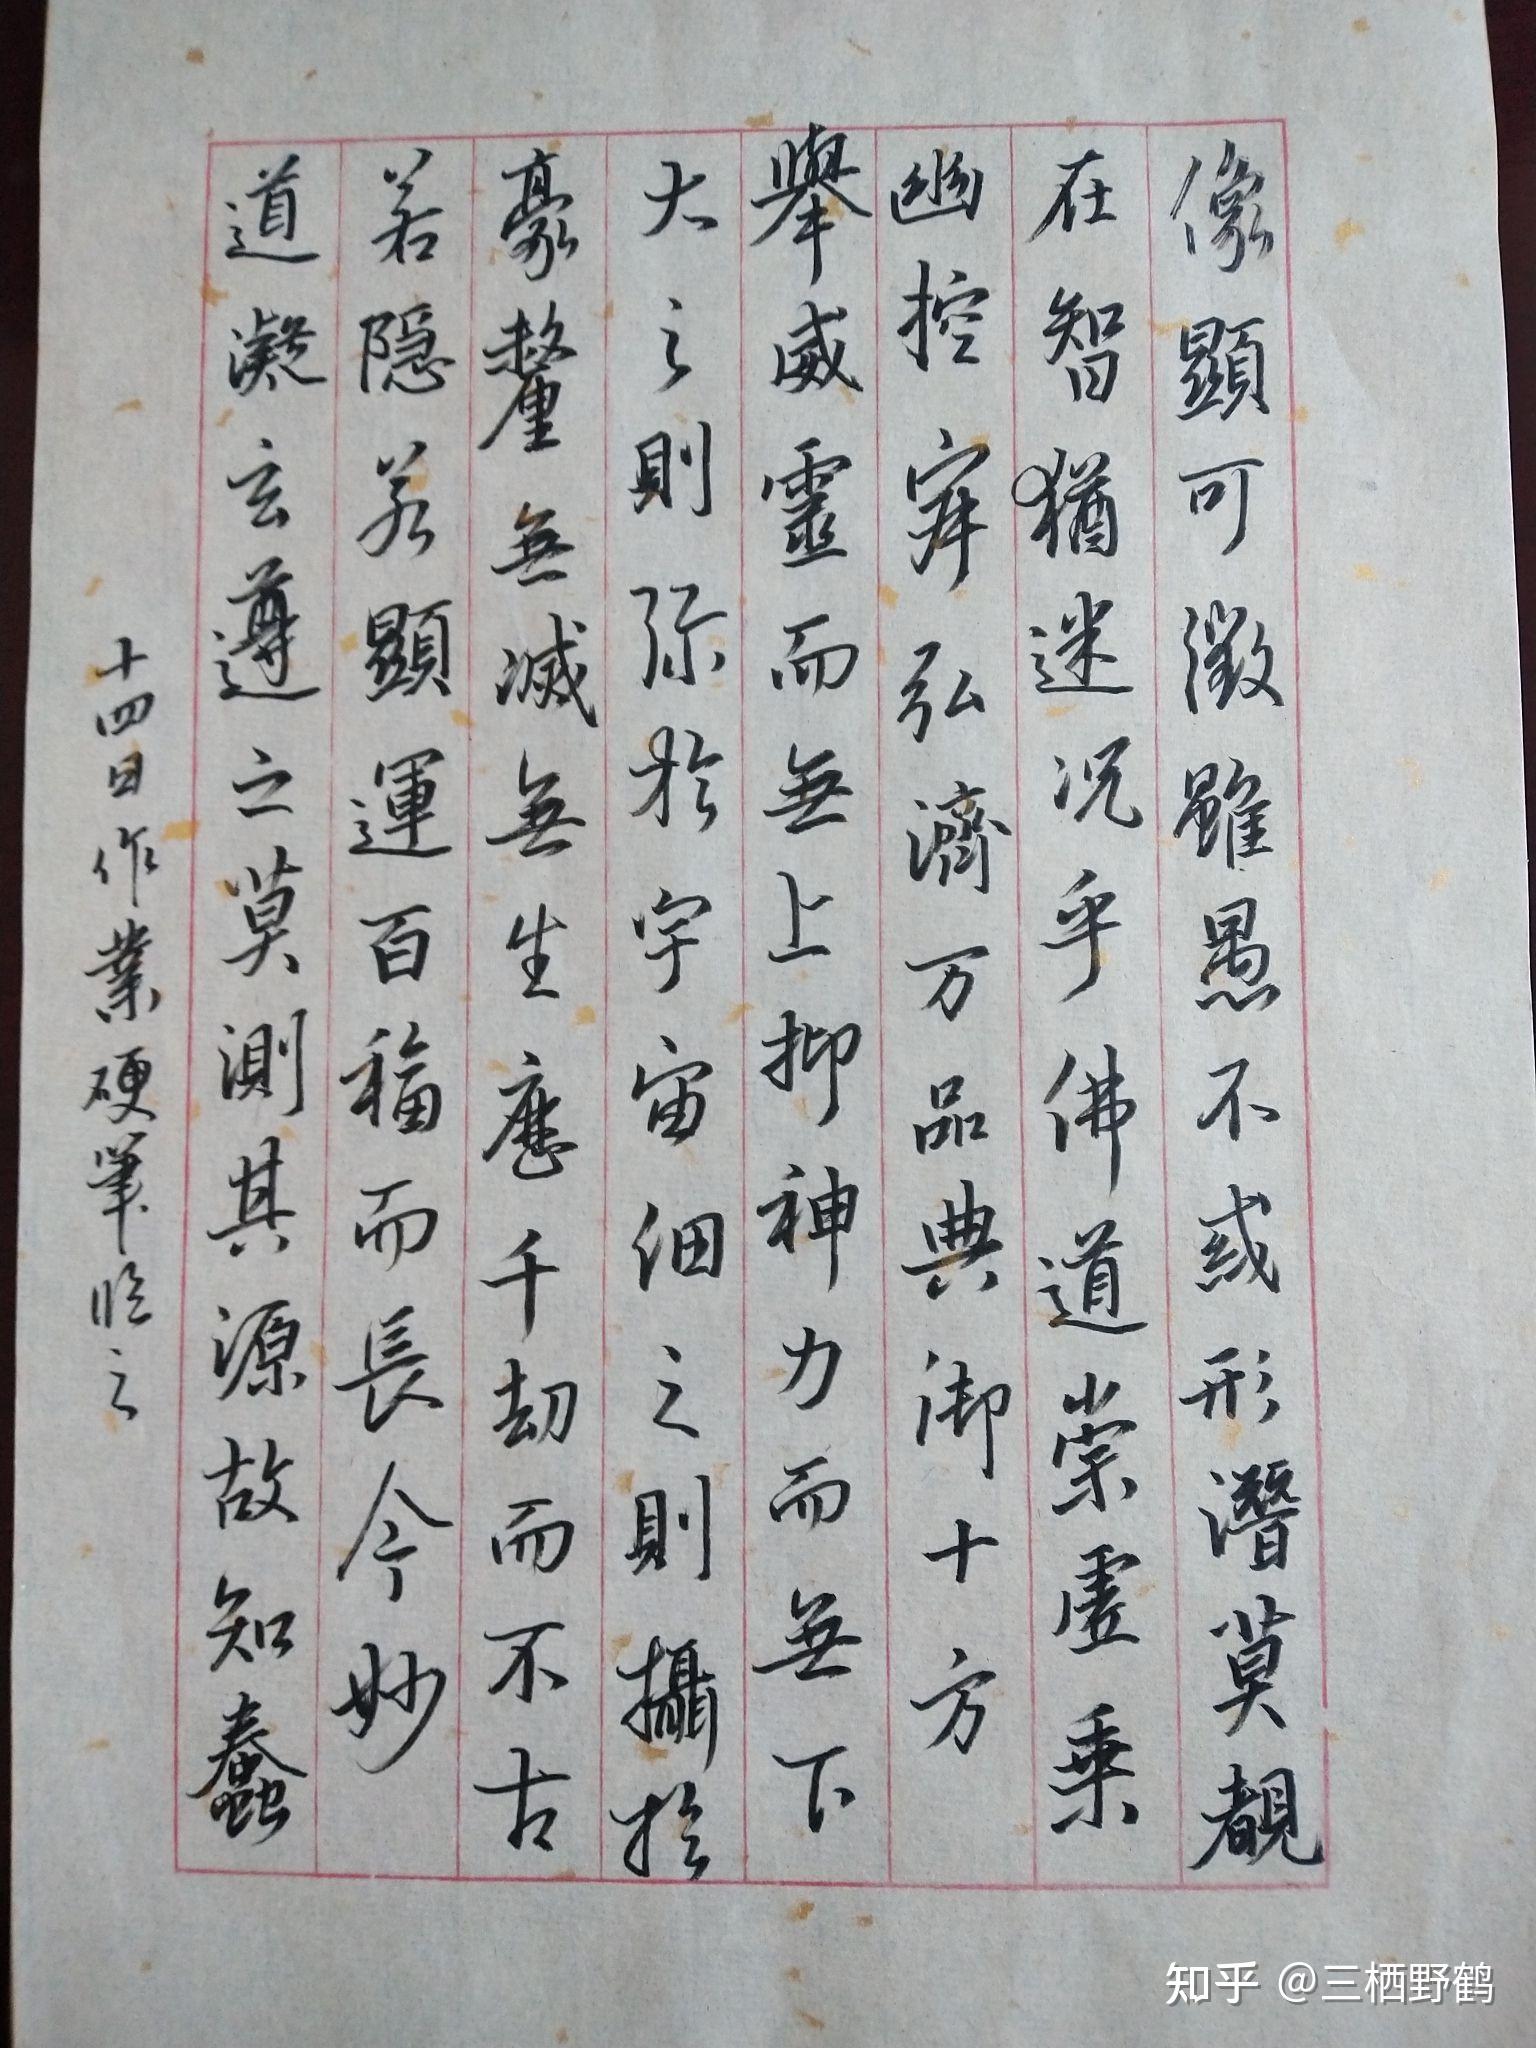 像顯可徵雖愚不惑形潛莫覩
在智猶迷况乎佛道崇虛乘
幽控寂弘濟万品典御十方
舉威靈而無上抑神力而無下
大之則弥於宇宙細之則攝於
豪釐無滅無生歷千劫而不古
若隱若顯運百福而長今妙
道凝玄遵之莫測其源故知蠢
十四日作業硬筆臨之
知乎 @三栖野鹤